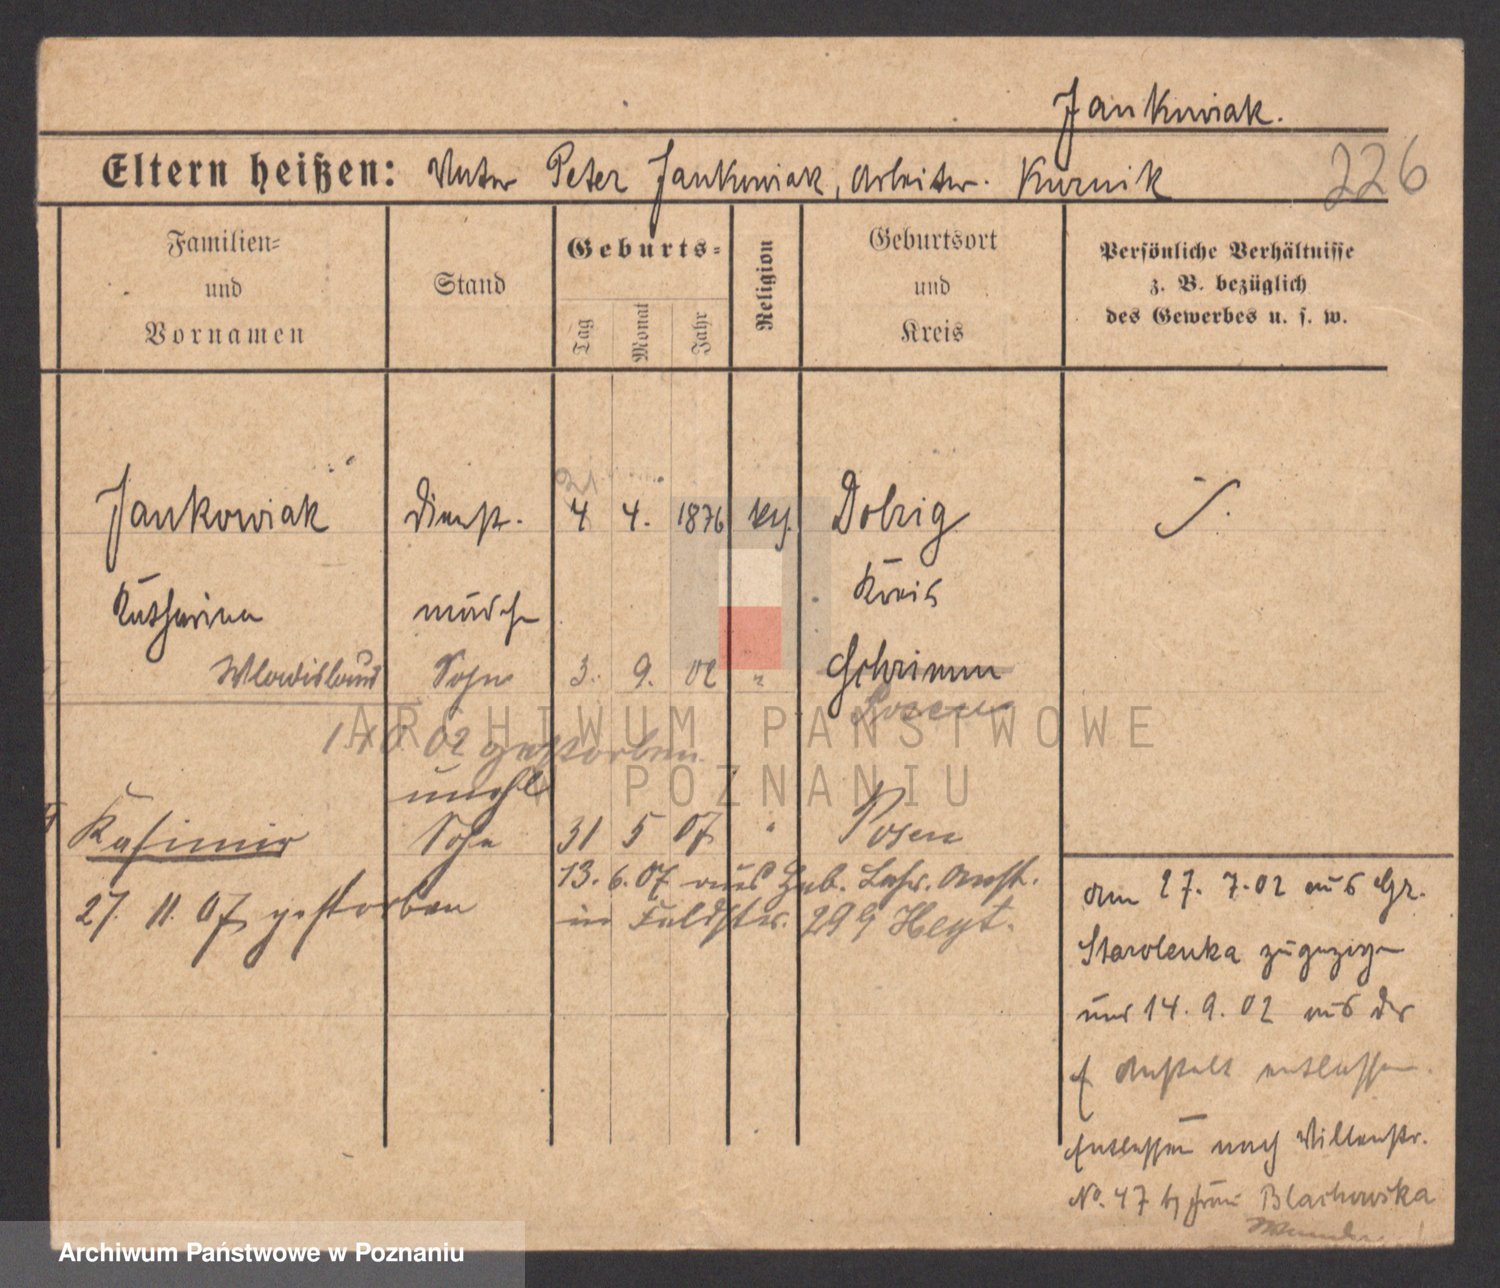 Jankowiak.
Eltern heißen: Vater Peter Jankowiak, Arbeiter. Kurnik
226
Familien-
und
Vornamen
Stand
Geburts-
Tag
Monat
Jahr
Religion
Geburtsort
und
Kreis
Persönliche Verhältnisse
z. B. bezüglich
des Gewerbes u. s. w.
Jankowiak Dienst- 4 4. 1876 Dolzig
Katharina mädch Kreis
Wladislaus Sohn 3. 9. 02 " Schrimm
Posen
10 02 gestorben
unehl
Kasimir Sohn 31 5 07 " Posen
13. 6. 07 aus Heb. Lehr. Anst.
27. 11. 07 gestorben
in Feldstr. 29
am 27. 7. 02 aus Gr.
Starolenka zugezogen
und 14. 9. 02 aus der
Anstalt entlassen.
Entlassen nach Villenstr.
No. 47 b/ Frau Blachowska
ARCHIWUM PAŃSTWOWE
W POZNANIU
Archiwum Państwowe w Poznaniu